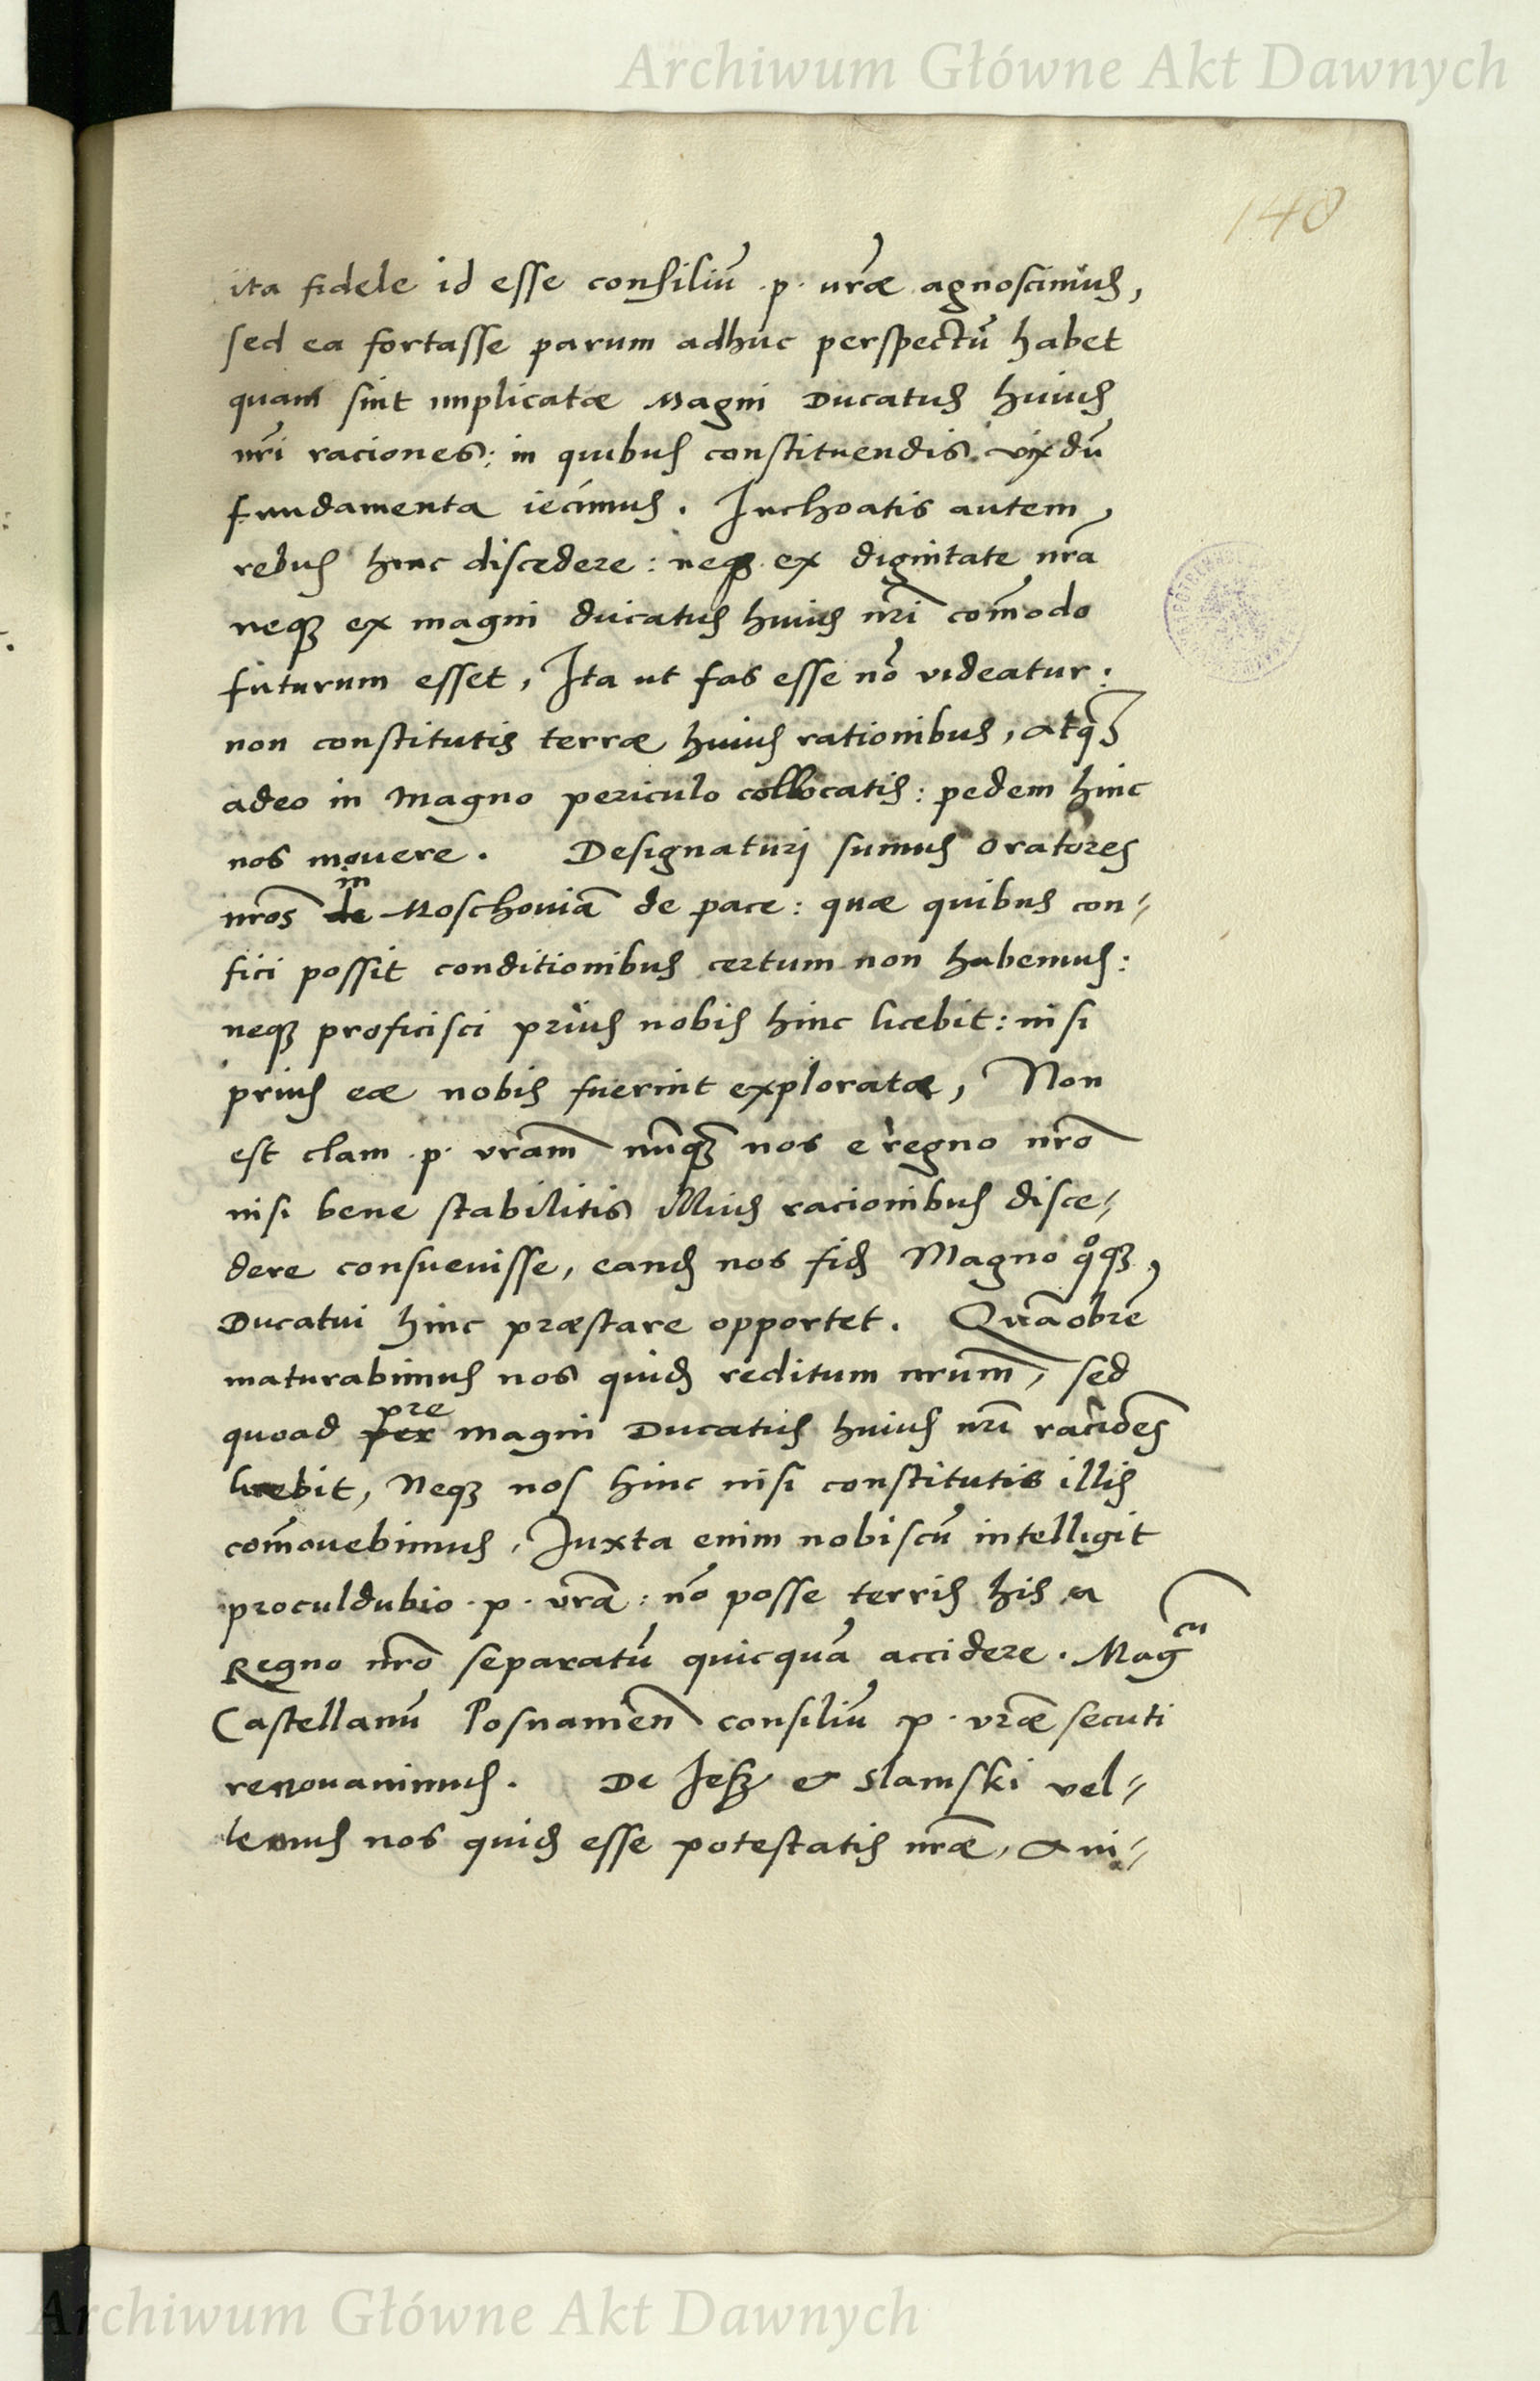 Archiwum Główne Akt Dawnych
148
ita fidele id esse consiliū .p. vr̃ae agnoscimus,
sed ea fortasse parum adhuc perspectū habet
quam sint implicatae Magni Ducatus huius
nr̃i raciones: in quibus constituendis vixdū
fundamenta iecimus. Inchoatis autem
rebus hinc discedere: neq̃ ex dignitate nr̃a
neq̃ ex magni ducatus huius nr̃i com̃odo
futurum esset, Ita ut fas esse nō videatur:
non constitutis terrae huius rationibus, atq̃
adeo in magno periculo collocatis: pedem hinc
nos mouere. Designaturj sumus oratores
nr̃os in Moschouiā de pace: quae quibus con-
fici possit conditionibus certum non habemus:
neq̃ proficisci prius nobis hinc licebit: nisi
prius eae nobis fuerint exploratae, Non
est clam .p. vr̃am nūq̃ nos e regno nr̃o
nisi bene stabilitis illius racionibus disce-
dere consueuisse, eand̃ nos fid̃ Magno q̊q̃
Ducatui hinc praestare opportet. Quāobrē
maturabimus nos quid̃ reditum nr̃um, sed
quoad pre magni Ducatus huius nr̃i raciões
licebit, Neq̃ nos hinc nisi constitutis illis
com̃ouebimus, Iuxta enim nobiscū intelligit
proculdubio .p. vr̃a: nō posse terris his a
Regno nr̃o separatū quicquā accidere. Mag̃cū
Castellanū Posnamen̄ consiliū p. vr̃ae secuti
renouauimus. De Jesz & slamski vel-
lemus nos quid̃ esse potestatis nr̃ae, & ni-
Archiwum Główne Akt Dawnych